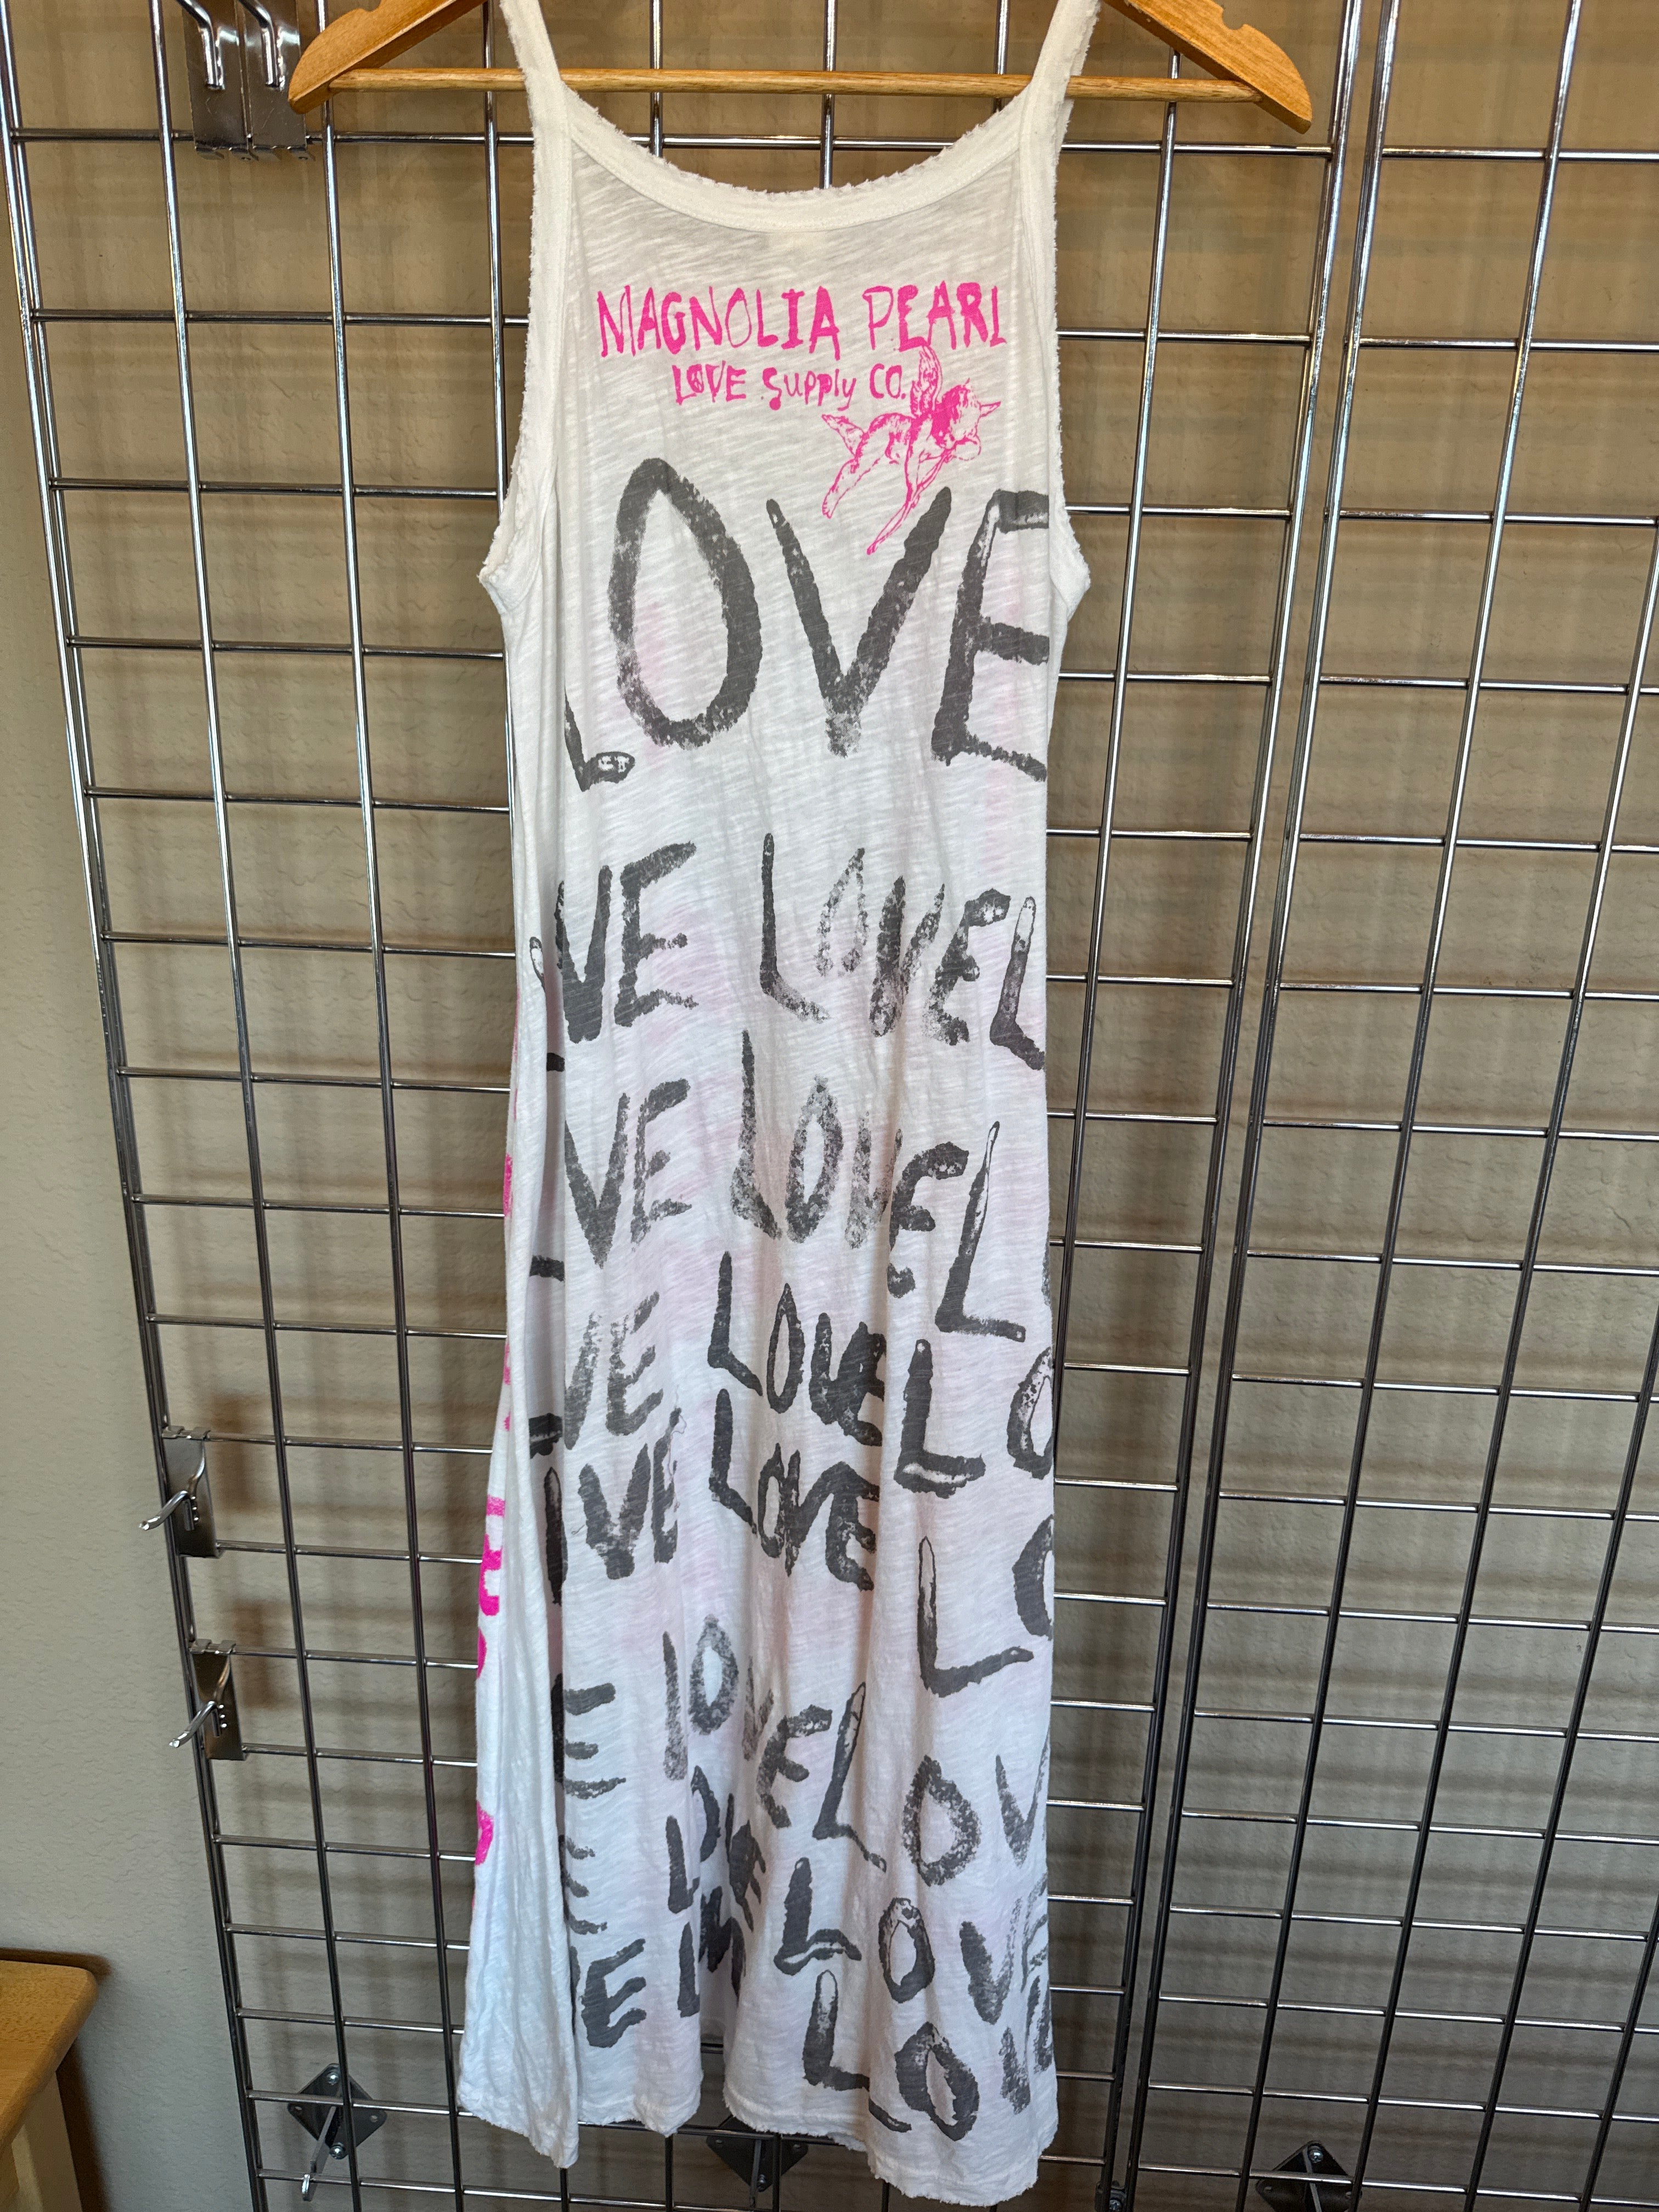 MAGNOLIA PEARL
LOVE Supply CO.
LOVE
VE LOVE L
VE LOVE L
VE LOVE LO
OVE LOVE LO
E LOVE LOV
E LOVE LOVE
E LO LOVE